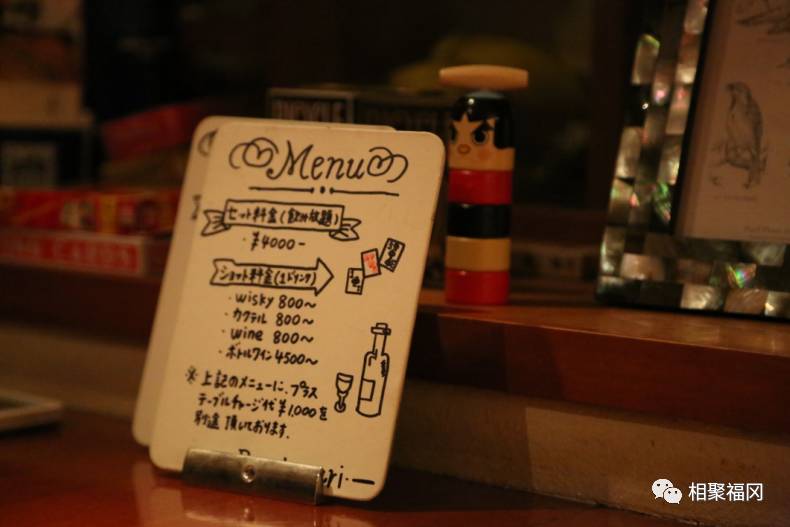 Menu
セット料金(飲み放題)
・¥4000-
ショット料金(1ドリンク)
・wisky 800~
・カクテル 800~
・wine 800~
・ボトルワイン4500~
※上記のメニューに、プラス
テーブルチャージ代¥1,000を
別途頂しております.
BICYCLE
相聚福冈